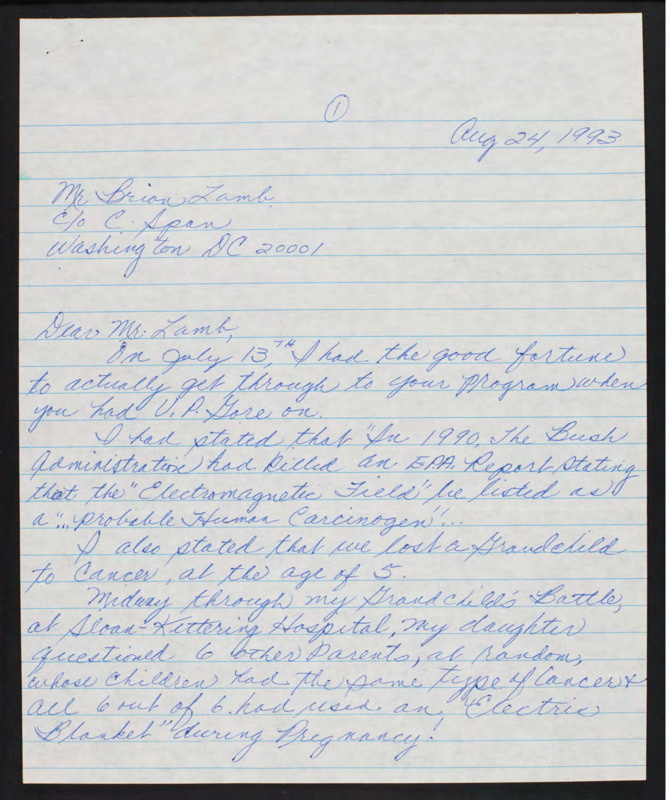 1
Aug 24, 1993
Mr. Brian Lamb
c/o C. Span
Washington DC 20001
Dear Mr. Lamb,
On July 13TH I had the good fortune
to actually get through to your Program when
you had V.P. Gore on.
I had stated that "In 1990, The Bush
Administration had killed an EPA. Report stating
that the "Electromagnetic Field" be listed as
a "... probable Human Carcinogen"...
I also stated that we lost a Grandchild
to Cancer, at the age of 5.
Midway through my Grandchild's Battle,
at Sloan-Kettering Hospital, my daughter
questioned 6 other Parents, at random,
whose children had the same type of Cancer &
all 6 out of 6. had used an "Electric
Blanket" during Pregnancy!